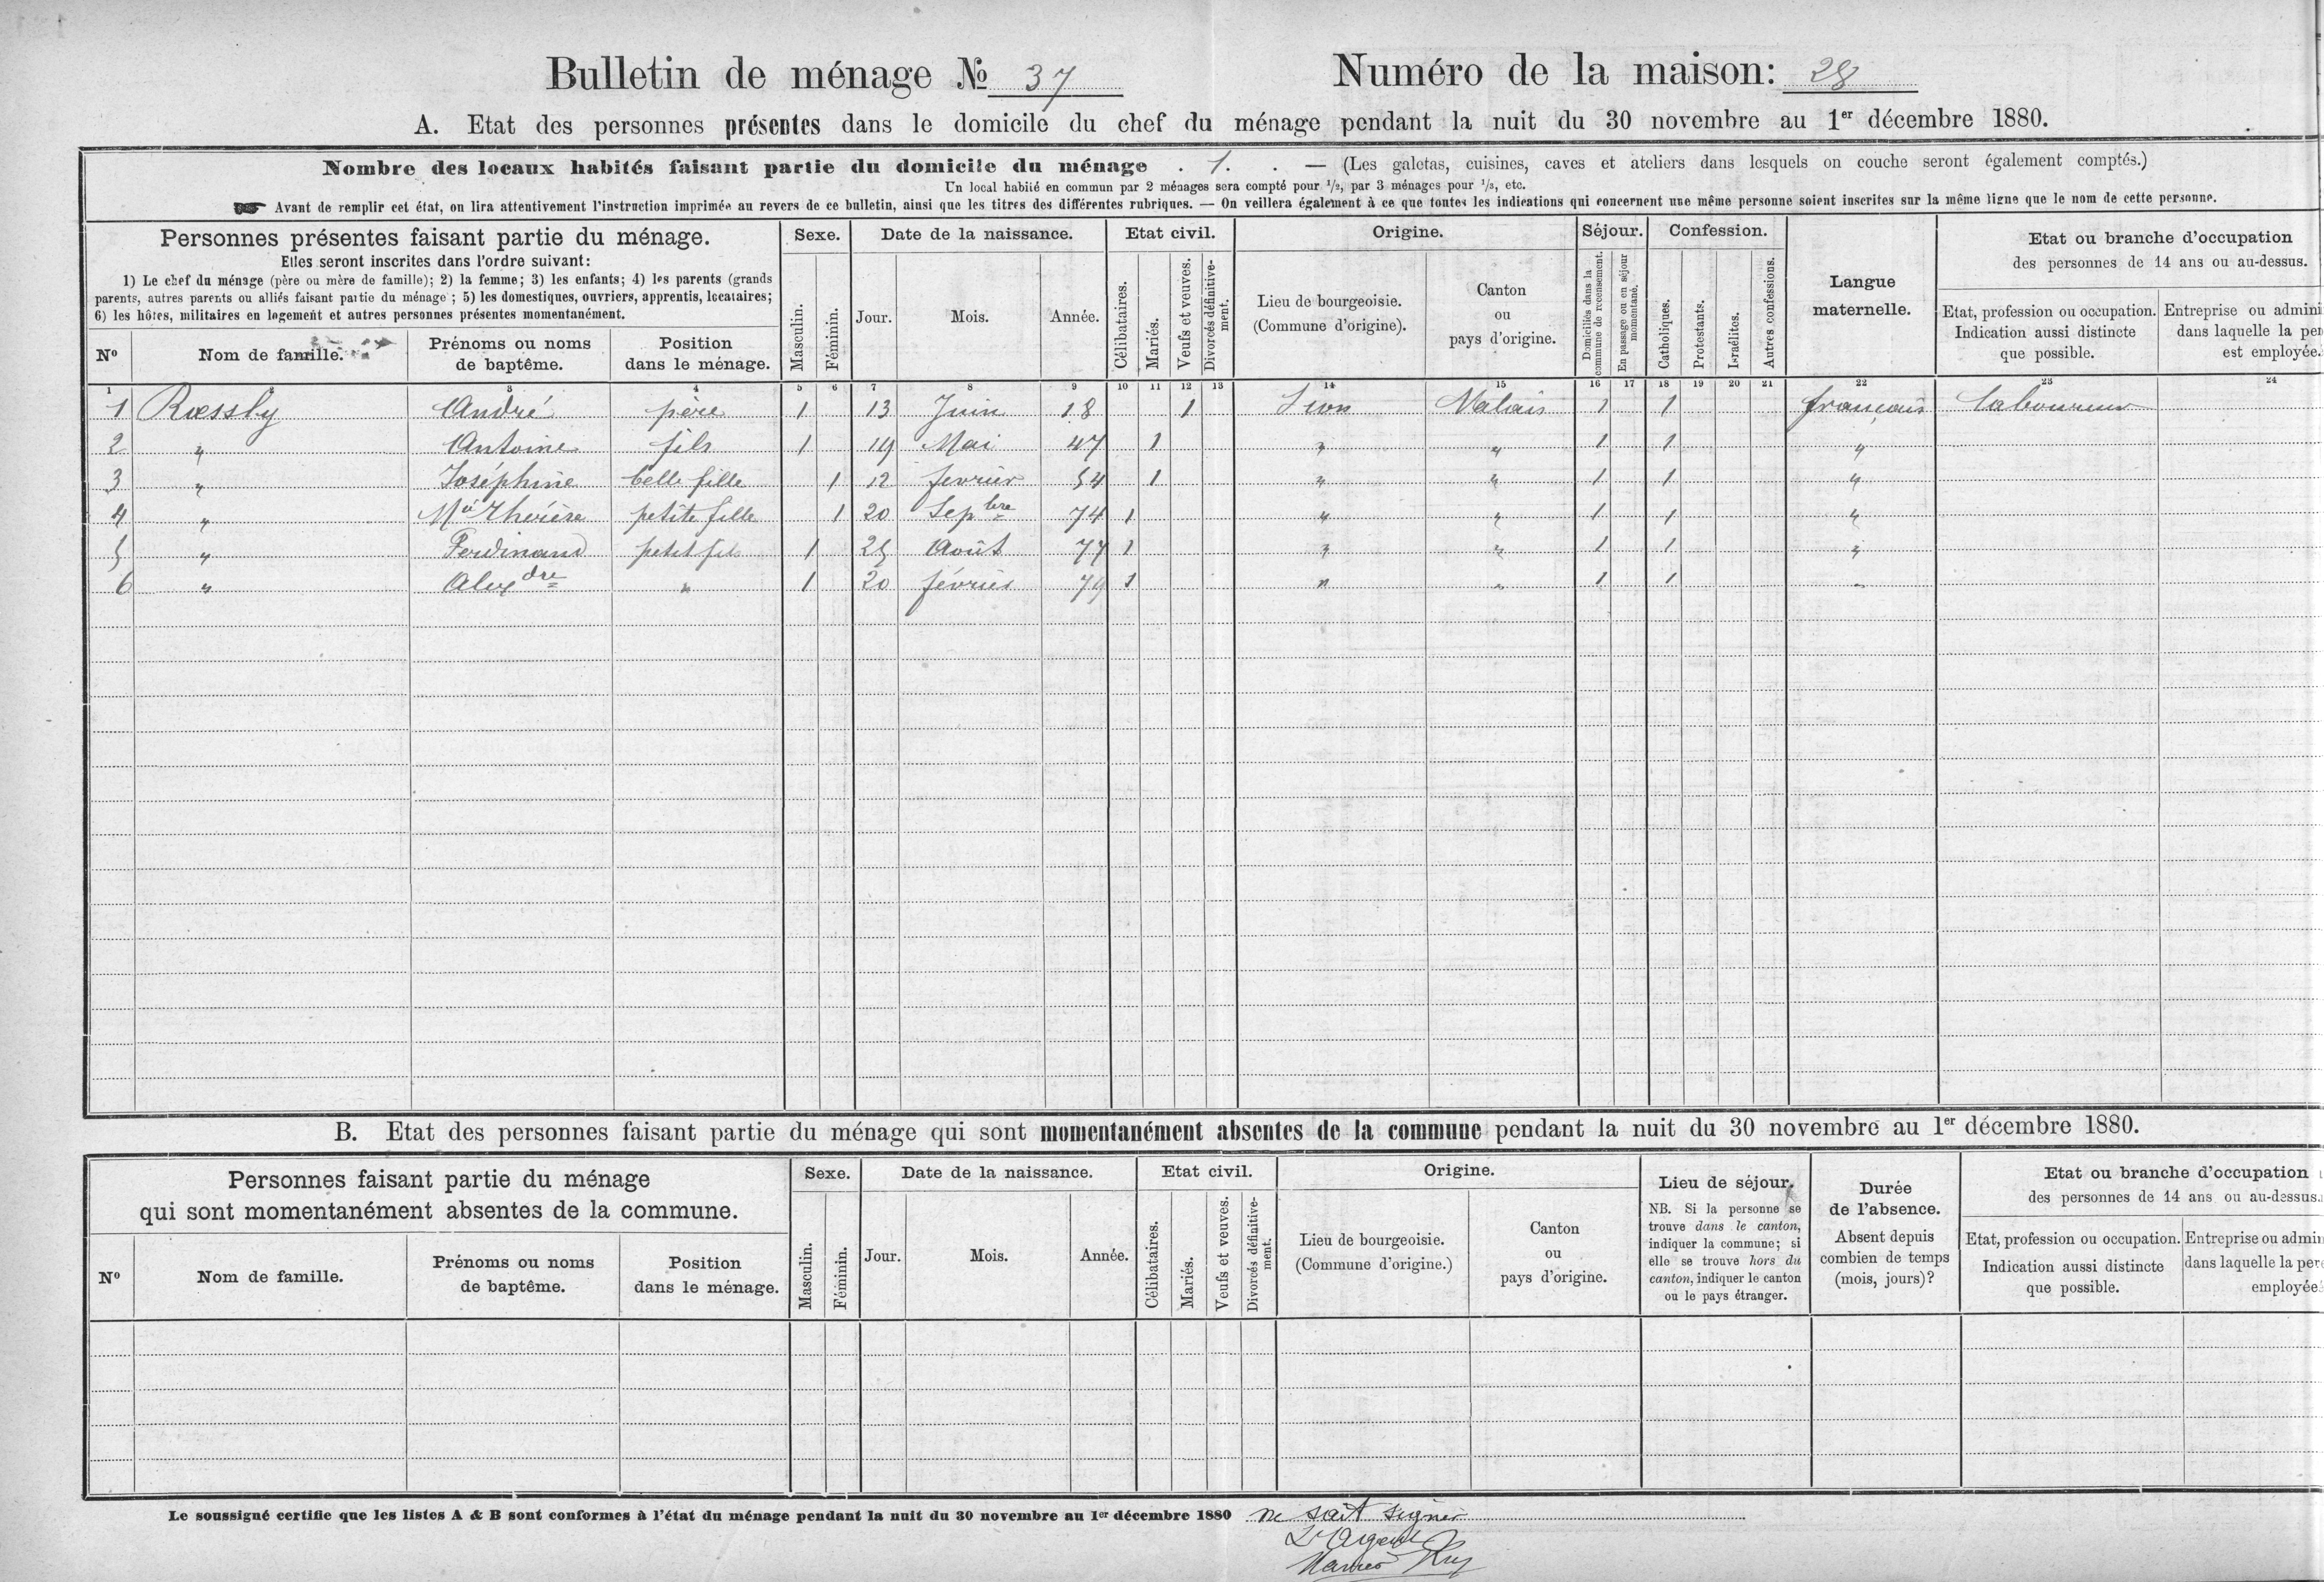 Bulletin de ménage № 37 Numéro de la maison: 28
A. Etat des personnes présentes dans le domicile du chef du ménage pendant la nuit du 30 novembre au 1er décembre 1880.
Nombre des locaux habités faisant partie du domicile du ménage . 1. . — (Les galetas, cuisines, caves et ateliers dans lesquels on couche seront également comptés.)
Un local habité en commun par 2 ménages sera compté pour 1/2, par 3 ménages pour 1/3, etc.
Avant de remplir cet état, on lira attentivement l'instruction imprimée au revers de ce bulletin, ainsi que les titres des différentes rubriques. — On veillera également à ce que toutes les indications qui concernent une même personne soient inscrites sur la même ligne que le nom de cette personne.
Personnes présentes faisant partie du ménage.
Elles seront inscrites dans l'ordre suivant:
1) Le chef du ménage (père ou mère de famille); 2) la femme; 3) les enfants; 4) les parents (grands
parents, autres parents ou alliés faisant partie du ménage ; 5) les domestiques, ouvriers, apprentis, locataires;
6) les hôtes, militaires en logement et autres personnes présentes momentanément.
Nº Nom de famille. Prénoms ou noms de baptême. Position dans le ménage.
Sexe. Masculin. Féminin.
Date de la naissance. Jour. Mois. Année.
Etat civil. Célibataires. Mariés. Veufs et veuves. Divorcés définitive-ment.
Origine. Lieu de bourgeoisie. (Commune d'origine). Canton ou pays d'origine.
Séjour. Domiciliés dans la commune de recensement. En passage ou en séjour momentané.
Confession. Catholiques. Protestants. Israélites. Autres confessions.
Langue maternelle.
Etat ou branche d'occupation
des personnes de 14 ans ou au-dessus.
Etat, profession ou occupation. Indication aussi distincte que possible.
Entreprise ou admini dans laquelle la per est employée.
1 2 3 4 5 6 7 8 9 10 11 12 13 14 15 16 17 18 19 20 21 22 23 24
1 Rœssly André père 1 13 Juin 18 1 Sion Valais 1 1 français laboureur
2 " Antoine fils 1 19 Mai 47 1 " " 1 1 "
3 " Joséphine belle fille 1 12 fevrier 54 1 " " 1 1 "
4 " Mie Thérèse petite fille 1 20 Sepbre 74 1 " " 1 1 "
5 " Ferdinand petit fils 1 25 Août 77 1 " " 1 1 "
6 " Alexdre " 1 20 février 79 1 " " 1 1 "
B. Etat des personnes faisant partie du ménage qui sont momentanément absentes de la commune pendant la nuit du 30 novembre au 1er décembre 1880.
Personnes faisant partie du ménage
qui sont momentanément absentes de la commune.
Nº Nom de famille. Prénoms ou noms de baptême. Position dans le ménage.
Sexe. Masculin. Féminin.
Date de la naissance. Jour. Mois. Année.
Etat civil. Célibataires. Mariés. Veufs et veuves. Divorcés définitive-ment.
Origine. Lieu de bourgeoisie. (Commune d'origine.) Canton ou pays d'origine.
Lieu de séjour.
NB. Si la personne se
trouve dans le canton,
indiquer la commune; si
elle se trouve hors du
canton, indiquer le canton
ou le pays étranger.
Durée
de l'absence.
Absent depuis
combien de temps
(mois, jours)?
Etat ou branche d'occupation
des personnes de 14 ans ou au-dessus.
Etat, profession ou occupation. Indication aussi distincte que possible.
Entreprise ou admin dans laquelle la per employée
Le soussigné certifie que les listes A & B sont conformes à l'état du ménage pendant la nuit du 30 novembre au 1er décembre 1880 ne sait signer
L'Agent